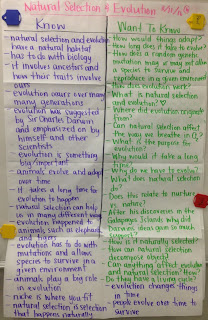 Natural Selection & Evolution
Know
- natural selection and evolution
have a natural habitat
- has to do with biology
- it involves ancestors and
how their traits involve
ours
- evolution occurs over many
many generations
- evolution was suggested
by Sir Charles Darwin
and emphasized on by
himself and other
scientists
- evolution is something
big/important
- animals evolve and adapt
over time
- it takes a long time for
evolution to happen
- natural selection can help
us in many different ways
- evolution happened to
animals such as elephants
and tigers
- evolution has to do with
mutations and allows
species to survive in a
given environment
- animals play a big role
in evolution
- niche is where you fit
- natural selection is selection
that happens naturally
Want To Know
- How would things adapt?
- How long does it take to evolve?
- How does a random genetic
mutation may or may not allow
a species to survive and
reproduce in a given environment?
- How does evolution work?
- What is natural selection
and evolution?
- Where did evolution originate
from?
- Can natural selection affect
the way we breathe in
- What is the purpose for
evolution?
- Why would it take a long
time?
- Why do we have to evolve?
- What does natural selection
do?
- Does this relate to nurture
vs. nature?
- After his discoveries in the
Galapagos Islands, why did
Darwin's ideas gain so much
support?
- How is it naturally selected?
- How can natural selection
decompose objects?
- Can anything affect evolution
and natural selection? How?
- Do they have a time cycle?
- evolution changes things
in time
- people evolve over time to
survive